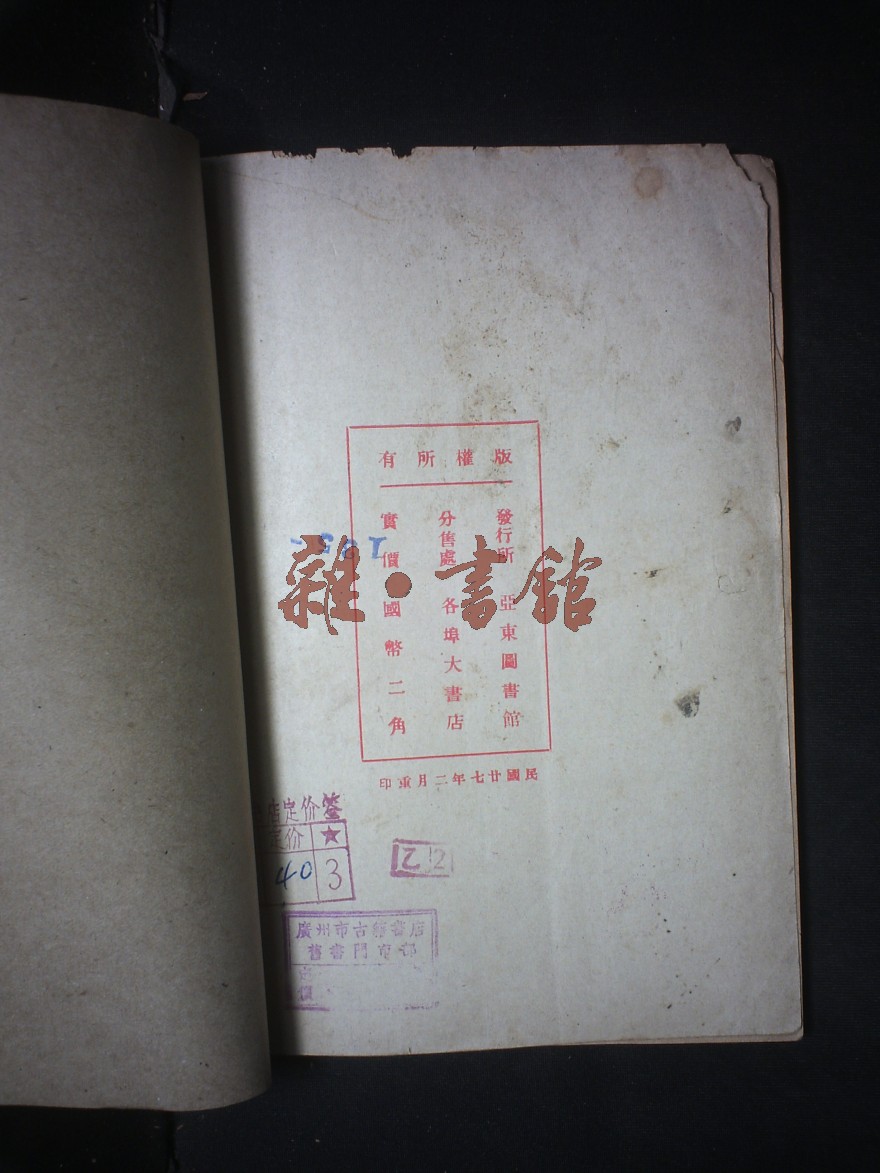 有所權版
發行所 亞東圖書館
分售處 各埠大書店
實價國幣二角
印重月二年七廿國民
195-
雜·書館
店定价签
定价 ★
40 3
乙 12
廣州市古籍書店
舊書門市部
定
價